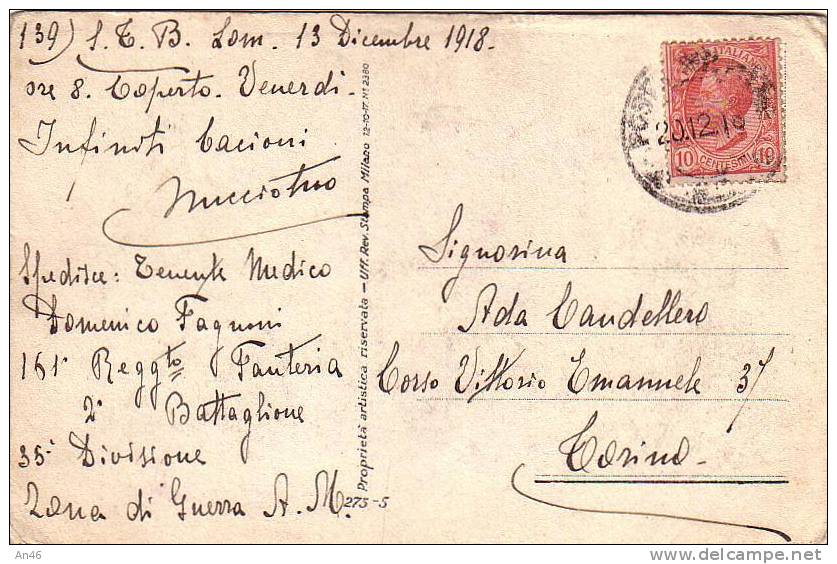 139) S. T. B. Lom. 13 Dicembre 1918.
ore 8. Coperto. Venerdi.
Infiniti Bacioni
Nucciotuo
Spedisce: Tenente Medico
Domenico Fagnoni
161° Reggto Fanteria
2° Battaglione
35ª Divisione
Zona di Guerra A. M.
275-5 Proprietà artistica riservata — Uff. Rev. Stampa Milano 12-10-17 N! 2380
10 CENTESIMI 10
20.12.1
Signorina
Ada Candellero
Corso Vittorio Emanuele 37
Torino
An46
delcampe.net